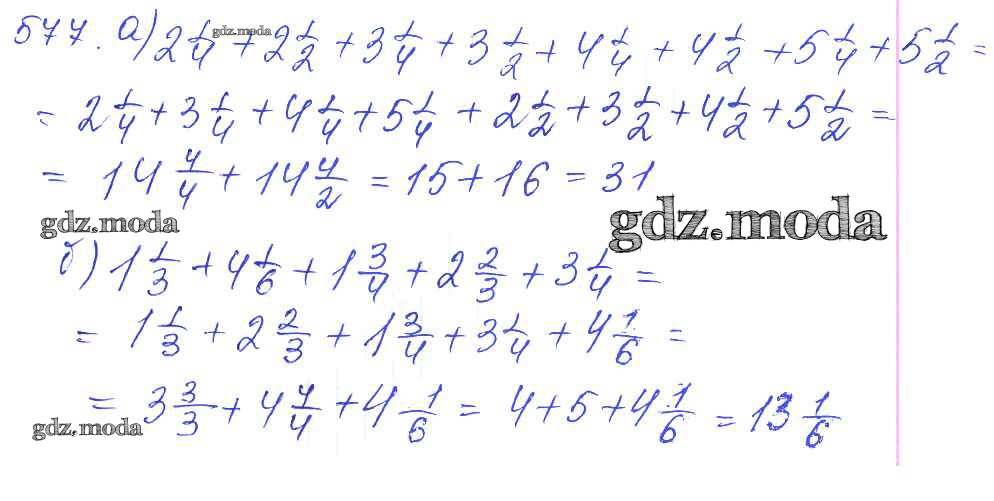 577. а) 2 1/4 + 2 1/2 + 3 1/4 + 3 1/2 + 4 1/4 + 4 1/2 + 5 1/4 + 5 1/2 =
gdz.moda
= 2 1/4 + 3 1/4 + 4 1/4 + 5 1/4 + 2 1/2 + 3 1/2 + 4 1/2 + 5 1/2 =
= 14 4/4 + 14 4/2 = 15 + 16 = 31
gdz.moda
gdz.moda
б) 1 1/3 + 4 1/6 + 1 3/4 + 2 2/3 + 3 1/4 =
= 1 1/3 + 2 2/3 + 1 3/4 + 3 1/4 + 4 1/6 =
= 3 3/3 + 4 4/4 + 4 1/6 = 4 + 5 + 4 1/6 = 13 1/6
gdz.moda